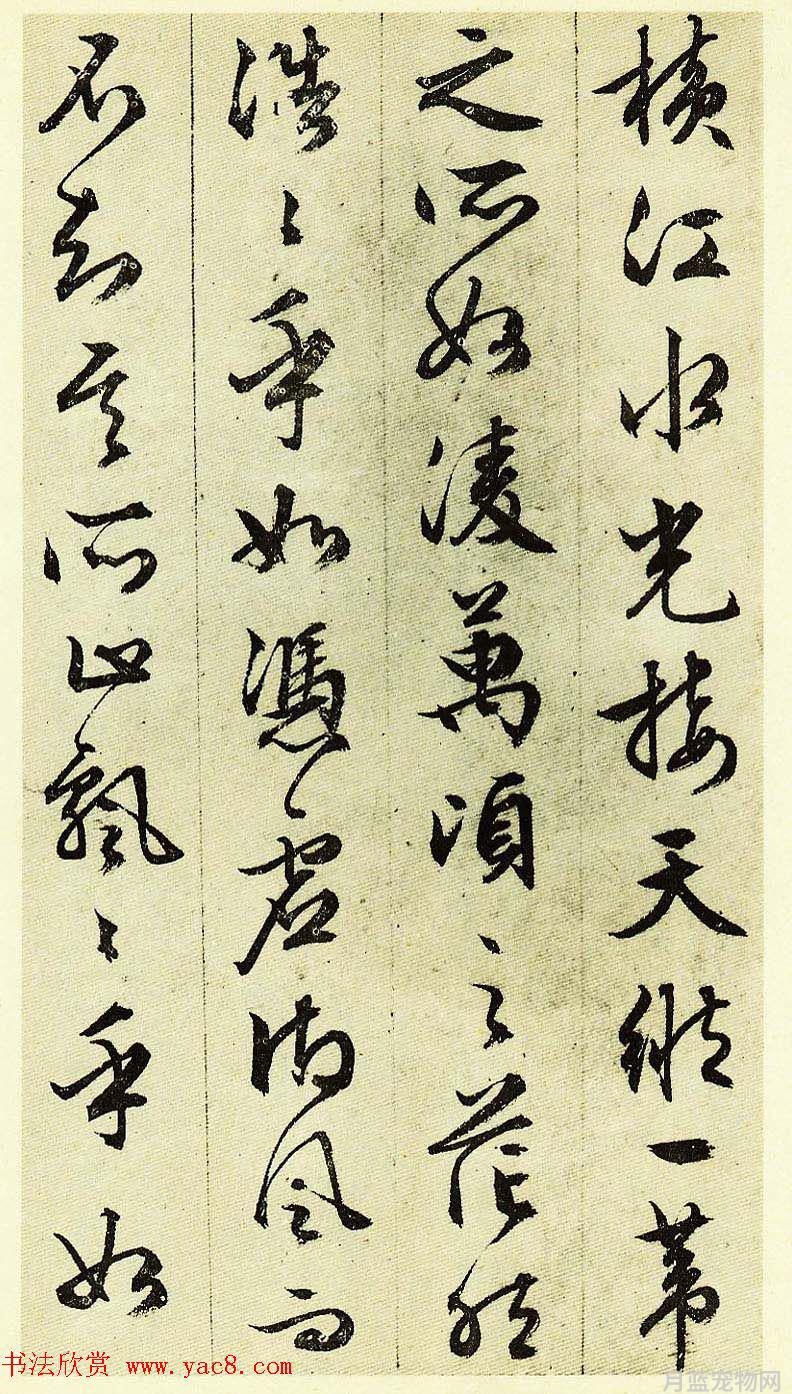 横江水光接天縱一葦
之所如凌萬頃之茫然
浩〻乎如憑虛御風而
不知其所止飄〻乎如
书法欣赏 www.yac8.com
月蓝宠物网